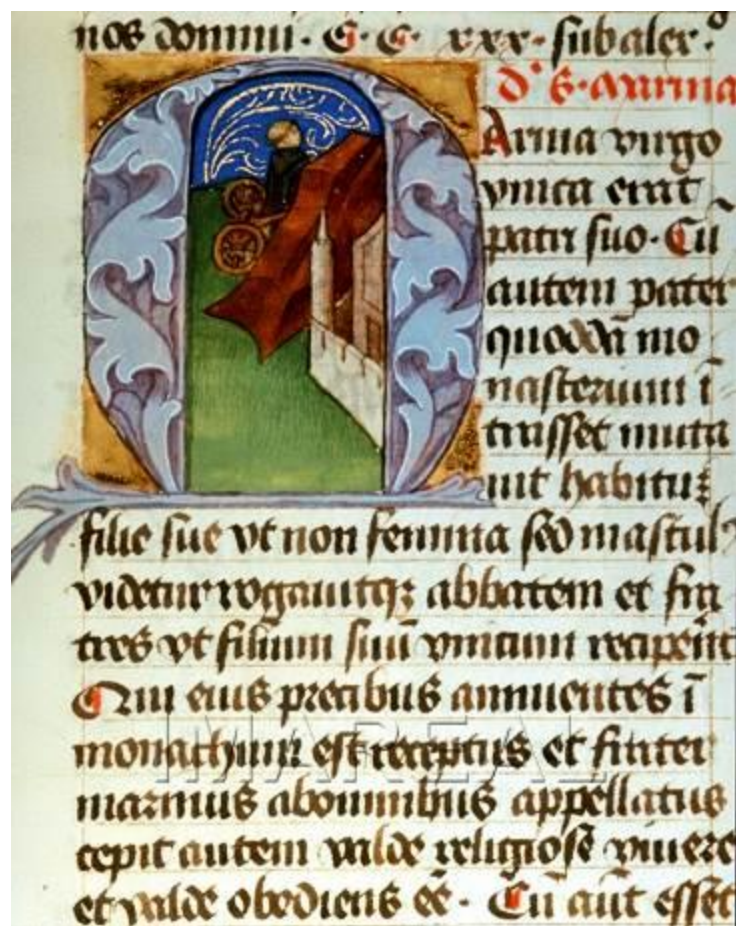 nos domini · C · C · xxx · sub alex
d' S · Marina
Arina virgo
vnica erat
patri suo · Cū
autem pater
quoddā mo
nasterium ī
trasset muta
uit habitū
filie sue vt non femina sed mascul9
videtur rogauitqꝫ abbatem et fra
tres vt filium suū vnicum reciperēt
Qui eius precibus annuentes ī
monachum est receptus et frater
marinus ab omnibus appellatus
cepit autem valde religiose viuere
et valde obediens eē · Cū aūt esset
IMAREAL